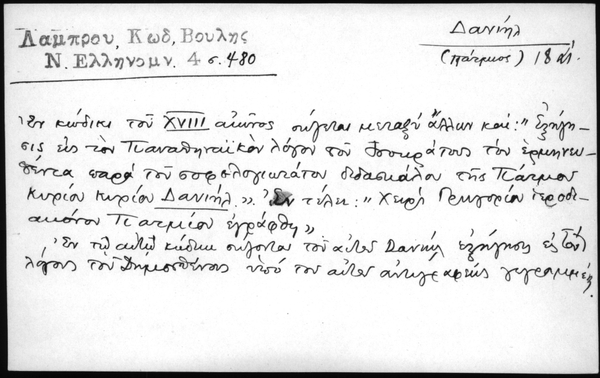 Λαμπρου, Κωδ, Βουλης
Ν. Ελληνομν. 4 σ. 480
Δανιήλ
(Πάτμιος) 18 αἰ.
Ἐν κώδικι τοῦ XVIII αἰῶνος σώζεται μεταξὺ ἄλλων καί: "Ἐξήγη-
σις εἰς τὸν Παναθηναϊκὸν λόγον τοῦ Ἰσοκράτους τὸν ἑρμηνευ-
θέντα παρὰ τοῦ σοφολογιωτάτου διδασκάλου τῆς Πάτμου
κυρίου κυρίου Δανιήλ". Ἐν τέλει: "Χειρὶ Γρηγορίου ἱεροδι-
ακόνου Πατμίου ἐγράφθη"
Ἐν τῷ αὐτῷ κώδικι σώζονται τοῦ αὐτοῦ Δανιήλ ἐξήγησις εἰς τοὺς
λόγους τοῦ Δημοσθένους ὑπὸ τοῦ αὐτοῦ ἀντιγραφέως γεγραμμέν